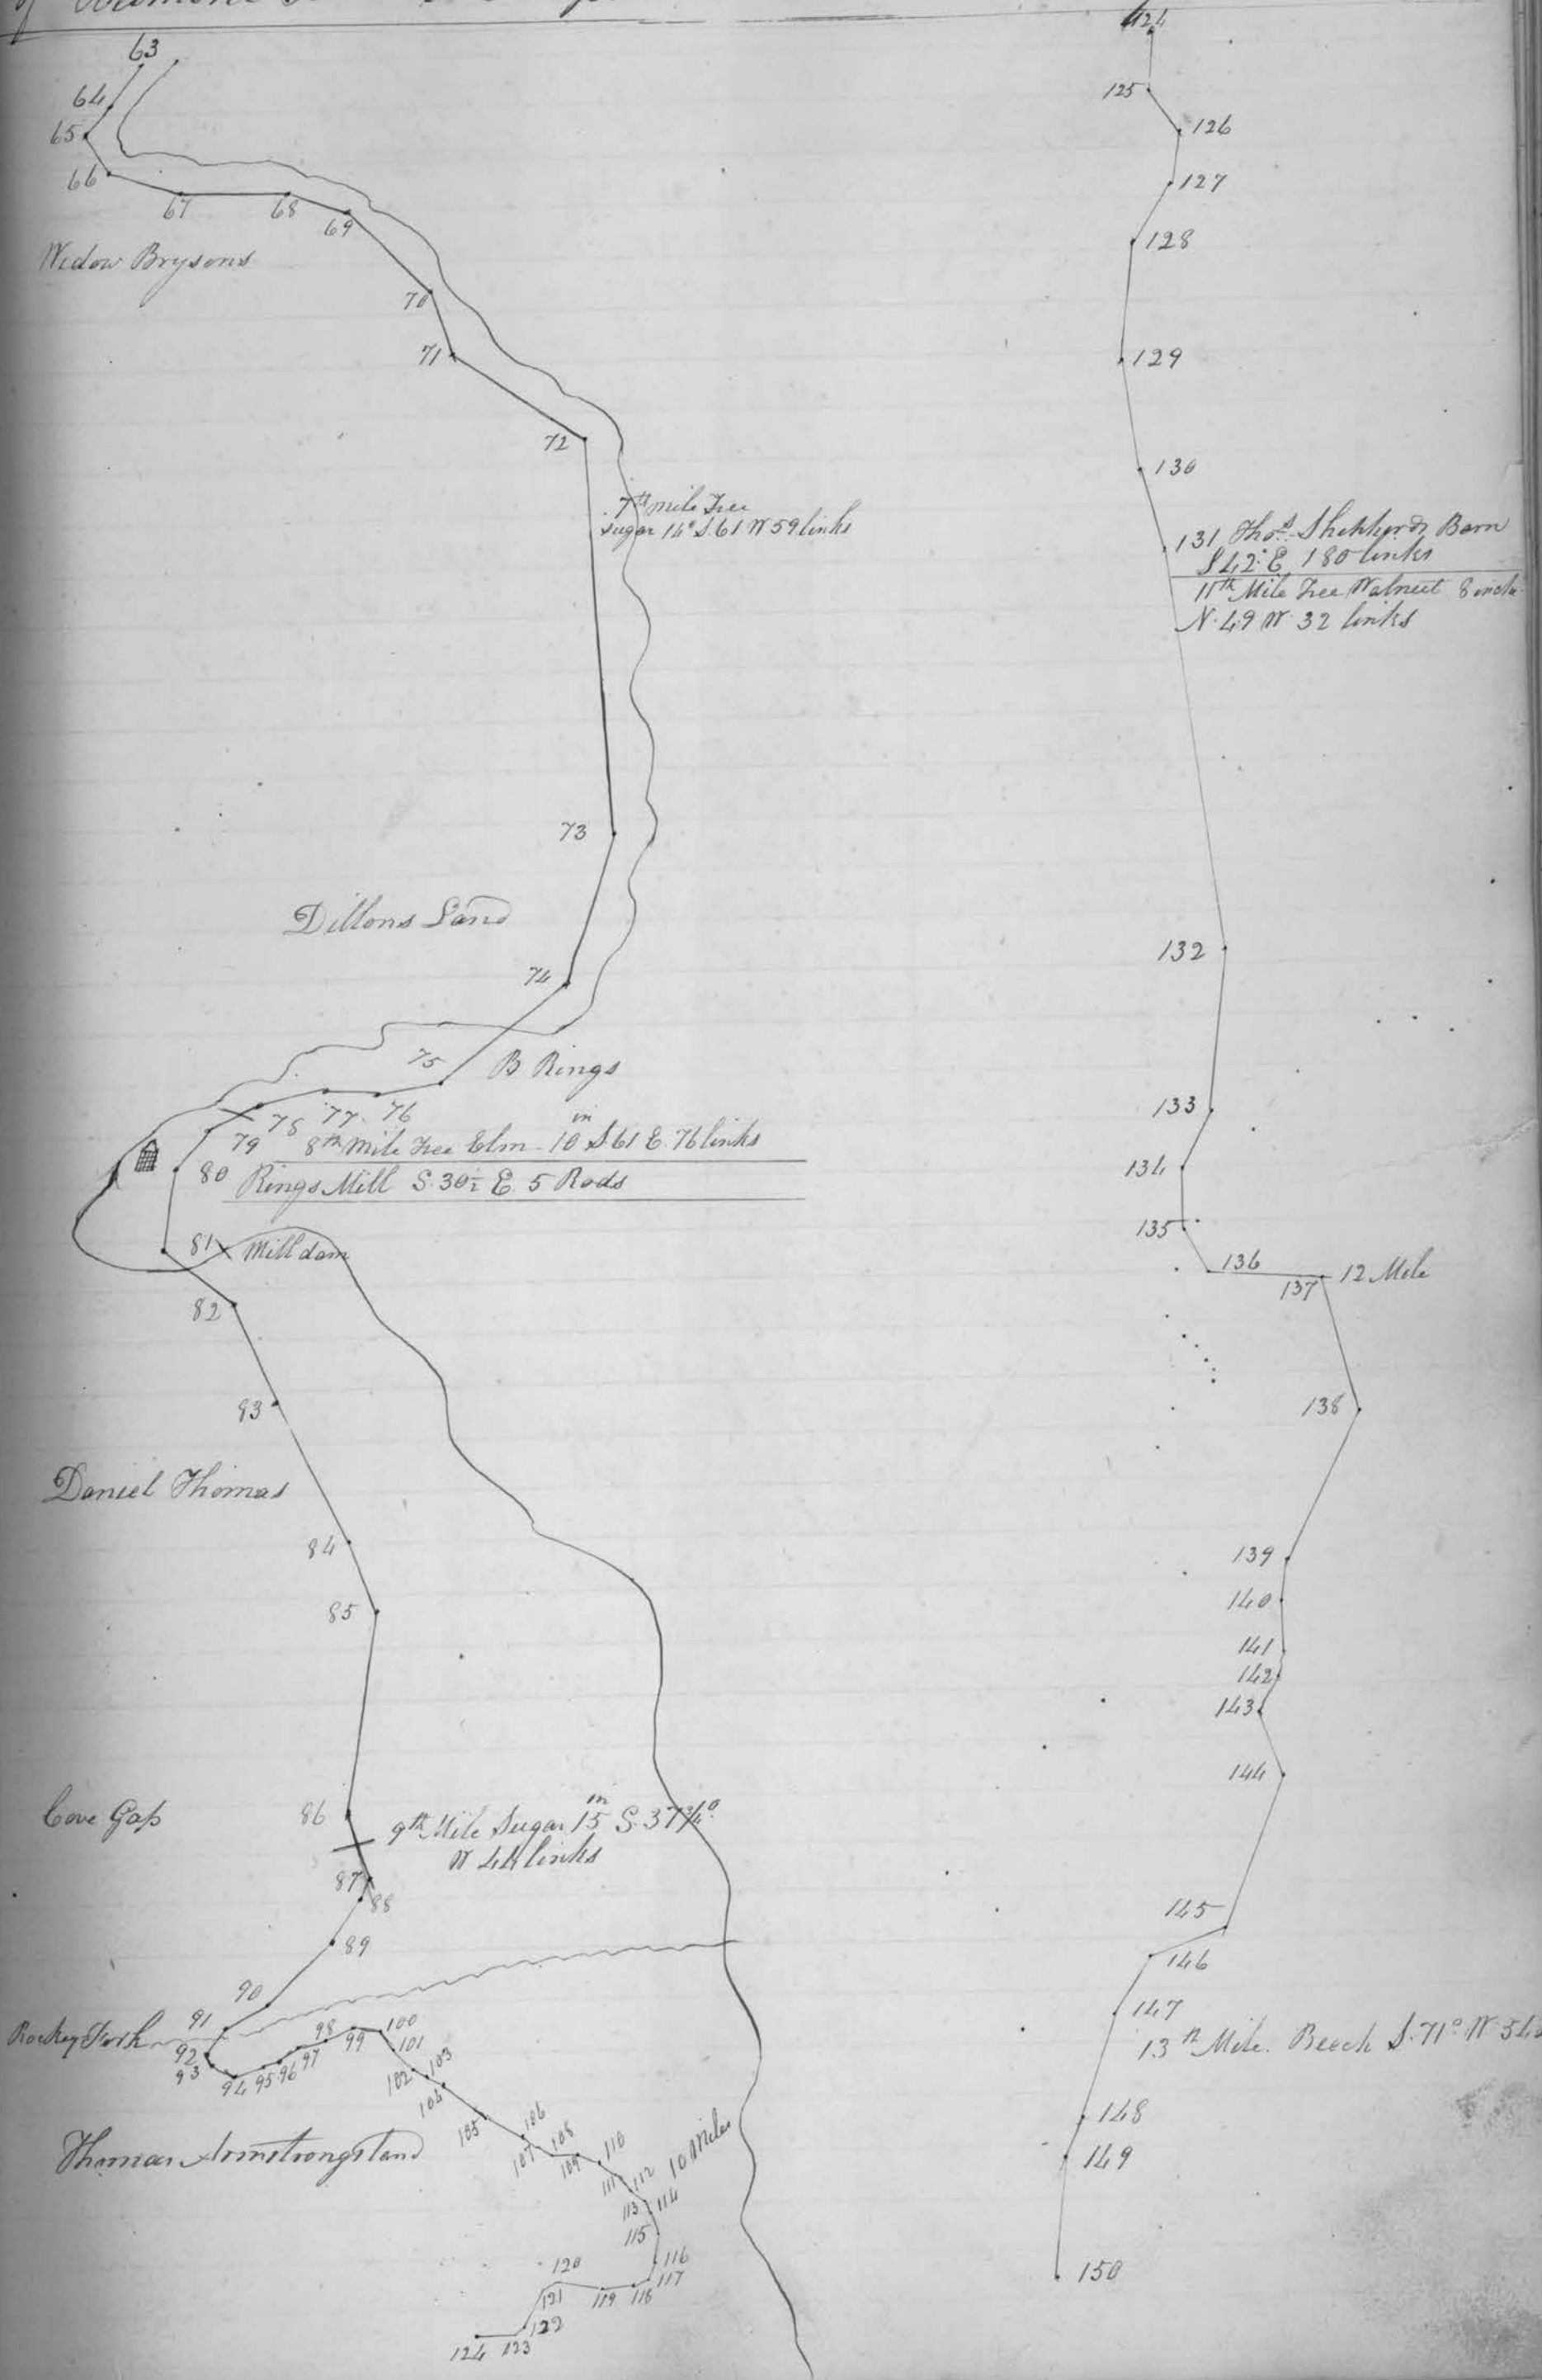 of
63
64
65
66
67
68
69
Widow Brysons
70
71
72
7th mile Tree
Sugar 14° S. 61 W 59 links
73
Dillons Land
74
75
B Rings
76
77
78
79
8th Mile Tree Elm 10 in S 61 E. 76 links
80
Rings Mill S. 30½ E. 5 Rods
81
Mill dam
82
83
Daniel Thomas
84
85
Cove Gap
86
9th Mile Sugar 15 in S. 37¾°
W 44 links
87
88
89
90
91
Rockey Fork
92
93
94
95
96
97
98
99
100
101
102
103
104
105
106
107
108
109
110
111
112
113
114
10 Miles
Thomas Armstrongs land
115
116
117
118
119
120
121
122
123
124
124
125
126
127
128
129
130
131 Thos. Shepherds Barn
S 42° E, 180 links
11th Mile Tree Walnut 8 inch
N. 49 W. 32 links
132
133
134
135
136
137
12 Mile
138
139
140
141
142
143
144
145
146
147
13th Mile. Beech S. 71° W
148
149
150